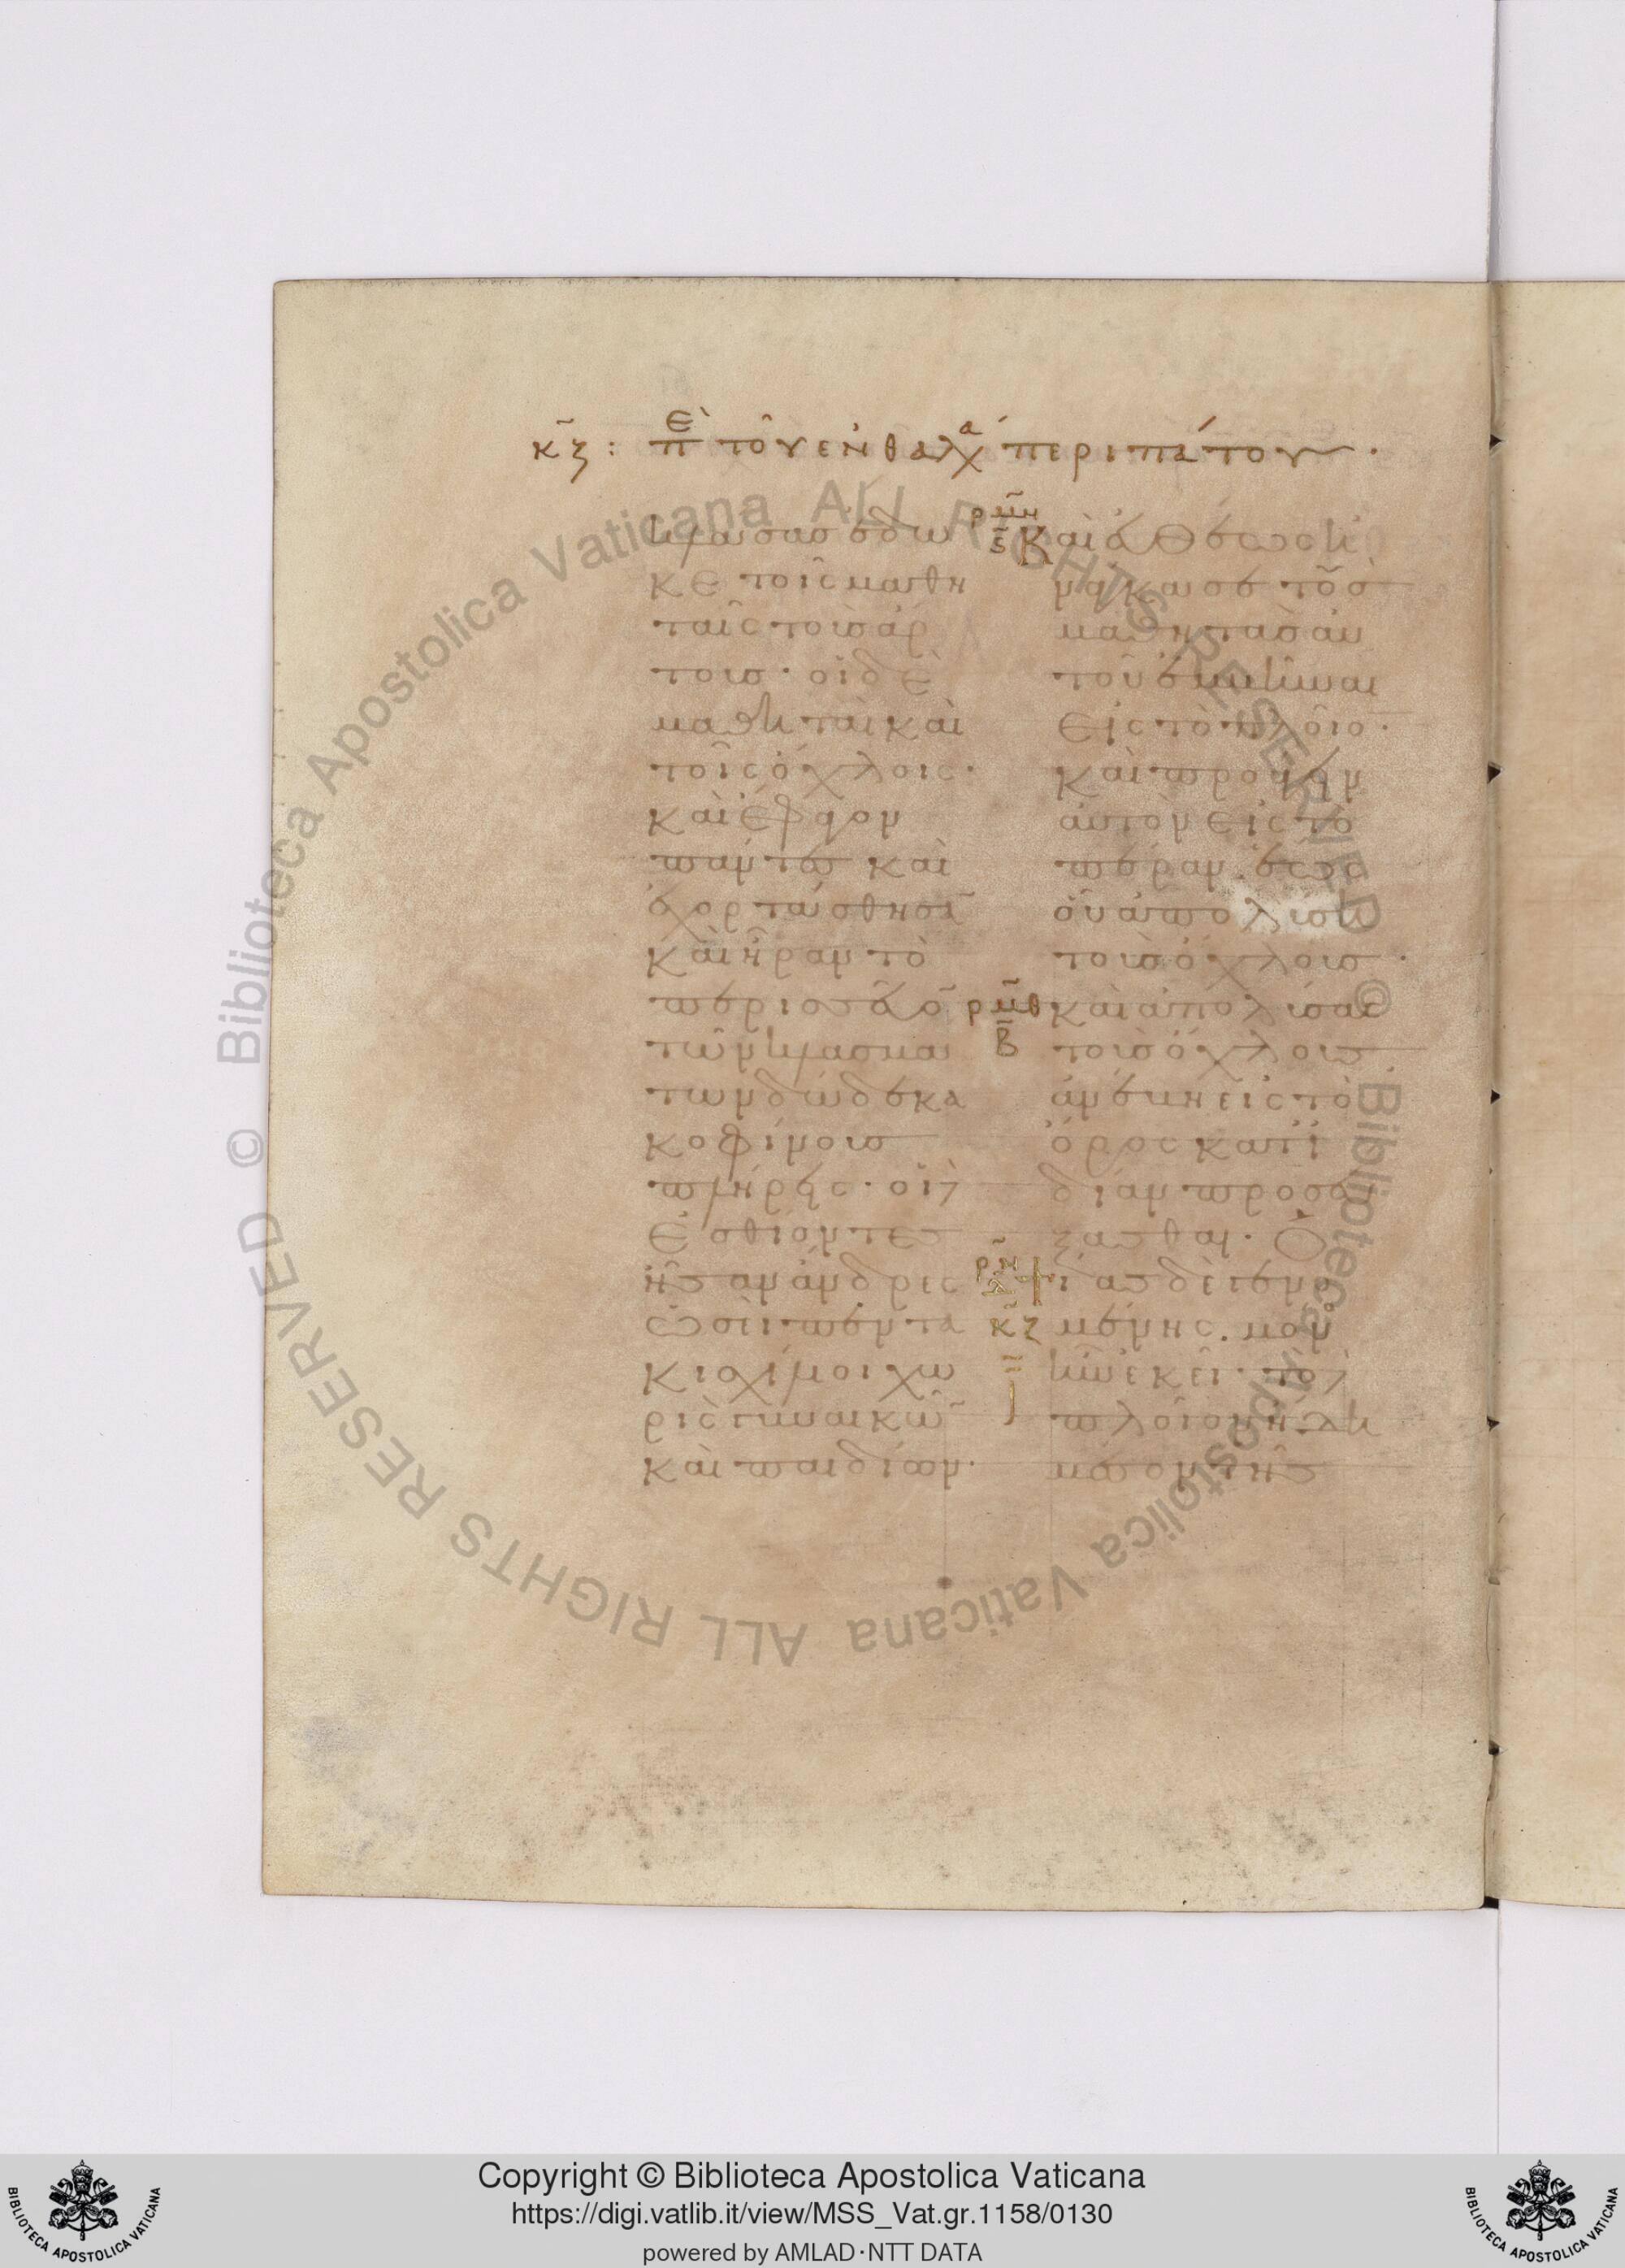 κζ: πε τοῦ ἐν θαλα περιπάτου.
κλάσας ἔδω
κε τοῖς μαθη
ταῖς τοὺς ἄρ
τους· οἱ δὲ
μαθηταὶ καὶ
τοῖς ὄχλοις·
καὶ ἔφαγον
πάντες καὶ
ἐχορτάσθησα̅
καὶ ἦραν τὸ
περισσεῦο̅
τῶν κλασμά
των δώδεκα
κοφίνους
πλήρεις· οἱ δὲ
ἐσθίοντες
ἦσαν ἄνδρες
ὡσεὶ πεντα
κισχίλιοι χω
ρὶς γυναικῶ̅
καὶ παιδίων·
ρμη
ς
Καὶ εὐθέως ἠ
νάγκασε τοὺς
μαθητὰς αὐ
τοῦ ἐμβῆναι
εἰς τὸ πλοῖον·
καὶ προάγειν
αὐτὸν εἰς τὸ
πέραν, ἕως
οὗ ἀπολύσῃ
τοὺς ὄχλους·
ρμθ
β
καὶ ἀπολύσας
τοὺς ὄχλους
ἀνέβη εἰς τὸ
ὄρος κατ' ἰ
δίαν προσεύ
ξασθαι. Ὀ
ρν
κζ
ψίας δὲ γενο
μένης, μόνος
ἦν ἐκεῖ· τὸ δὲ
πλοῖον ἤδη
μέσον τῆς
© Biblioteca Apostolica Vaticana ALL RIGHTS RESERVED © Biblioteca Apostolica Vaticana ALL RIGHTS RESERVED
Copyright © Biblioteca Apostolica Vaticana
https://digi.vatlib.it/view/MSS_Vat.gr.1158/0130
powered by AMLAD·NTT DATA
BIBLIOTECA APOSTOLICA VATICANA
BIBLIOTECA APOSTOLICA VATICANA